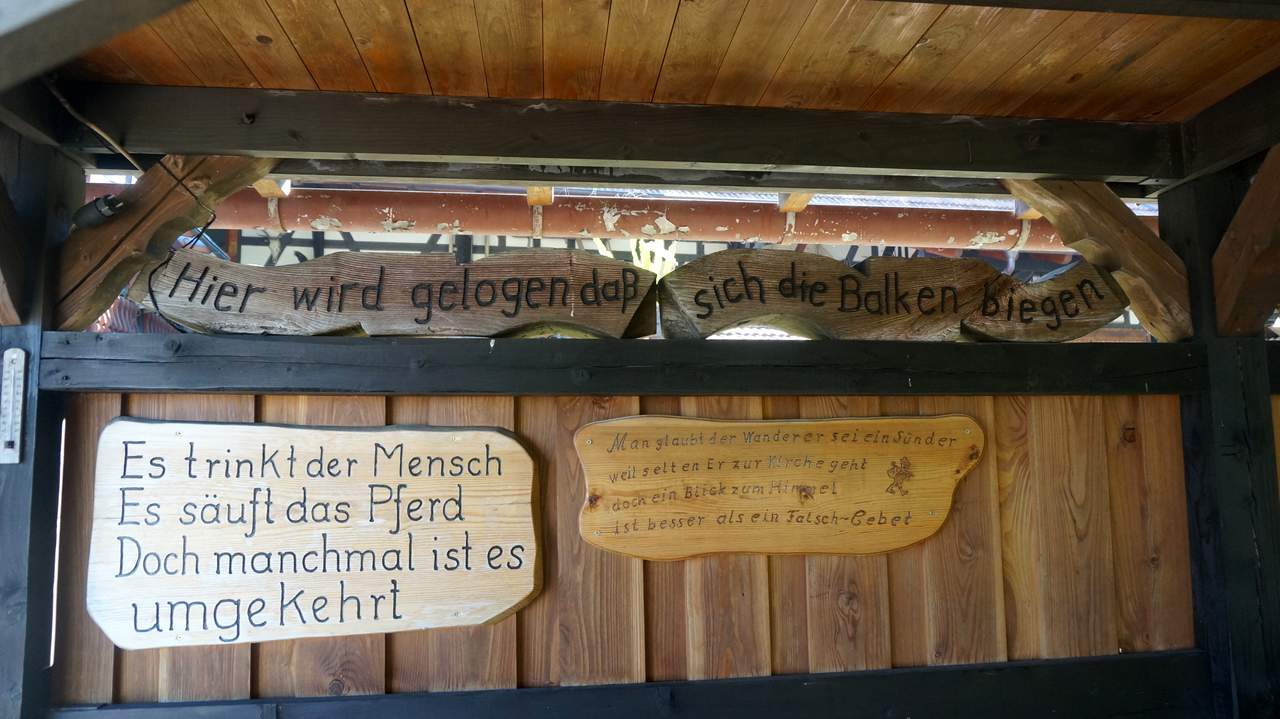 Hier wird gelogen daß sich die Balken biegen
Es trinkt der Mensch
Es säuft das Pferd
Doch manchmal ist es
umgekehrt
Man glaubt der Wanderer sei ein Sünder
weil selten Er zur Kirche geht
doch ein Blick zum Himmel
ist besser als ein Falsch-Gebet